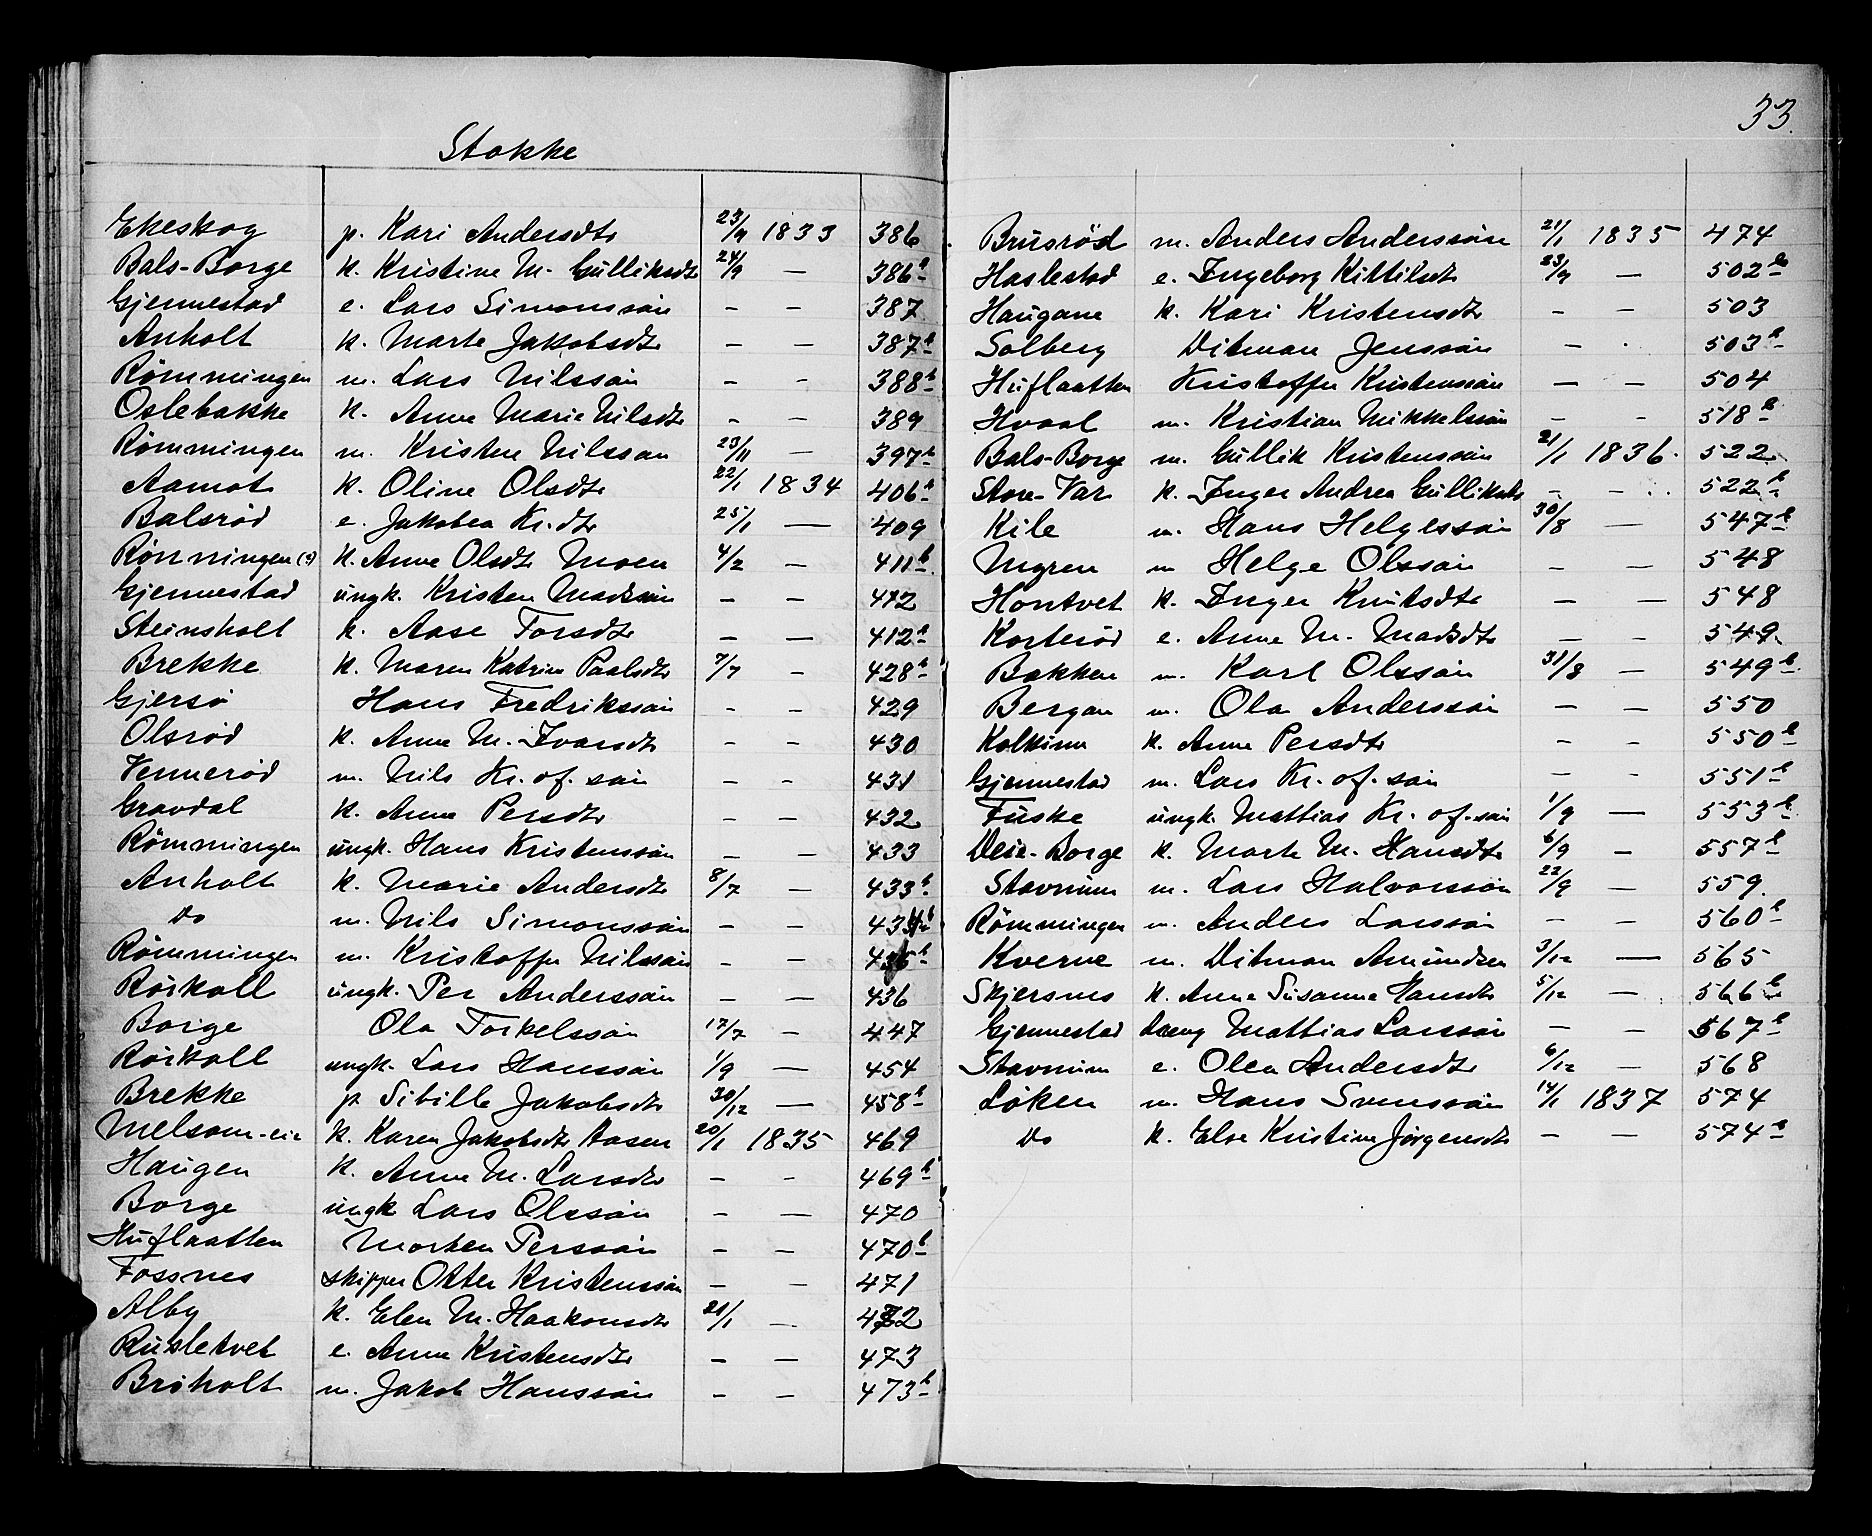 33.
Stokke
Ekeskog p. Kari Andersdtr 23/9 1833 386
Bals-Borge k. Kristine M. Gulliksdtr 24/9 — 386b
Gjennestad e. Lars Simonssön – – 387
Anholt k. Marte Jakobsdtr – – 387b
Römmingen m. Lars Nilssön – – 388b
Oslebakke k. Anne Marie Nilsdtr – – 389
Römmingen m. Kristen Nilsson 23/11 — 397b
Aamot k. Oline Olsdtr 22/1 1834 406b
Balsröd e. Jakobea Kr.dtr 25/1 — 409
Römmingen (?) k. Anne Olsdtr Moen 4/2 – 411b
Gjennestad ungk. Kristen Madssön – – 412
Steinsholt k. Aase Torsdtr – — 412b
Brekke k. Maren Katrine Paalsdtr 7/7 – 428b
Gjersö Hans Fredrikssön – – 429
Olsröd k. Anne M. Ivarsdtr – – 430
Venneröd m. Nils Kr.of.sön – – 431
Gravdal k. Anne Persdtr – – 432
Römmingen ungk. Hans Kristenssön – – 433
Anholt k. Marie Andersdtr 8/7 – 433b
Do m. Nils Simonssön – – 434b
Römmingen m. Kristoffer Nilssön – – 435b
Röikoll ungk. Per Anderssön – – 436
Borge Ola Torkelssön 17/7 – 447
Röikoll ungk. Lars Hanssön 1/9 — 454
Brekke p. Sibille Jakobsdtr 30/12 — 458b
Melsom-eie k. Karen Jakobsdtr Aasen 20/1 1835 469
Haugen k. Anne M. Larsdtr – – 469b
Borge ungk Lars Olssön – — 470
Huflaatten Morten Perssön – — 470b
Fossnes skipper Otter Kristenssön – – 471
Alby k. Elen M. Haakonsdtr 21/1 — 472
Rusletvet e. Anne Kristensdtr – — 473
Bröholt m. Jakob Hanssön – – 473b
Brusröd m. Anders Anderssön 21/1 1835 474
Haslestad e. Ingeborg Kittilsdtr 23/9 — 502b
Haugane k. Kari Kristensdtr – – 503
Solberg Ditman Jenssön – . 503b
Huflaatten Kristoffer Kristenssön – – 504
Hvaal m. Kristian Mikkelssön – – 518b
Bals-Borge m. Gullik Kristenssön 21/1 1836. 522
Store-Var k. Inger Andrea Gulliksdtr – – 522b
Kile m. Hans Helgessön 30/8 — 547b
Myren m Helge Olssön – — 548
Hontvet k. Inger Knutsdtr – — 548
Korteröd e. Anne M. Madsdtr – – 549
Bakken m. Karl Olssön 31/8 — 549b
Bergan m. Ola Anderssön – — 550
Kolkinn k. Anne Persdtr – – 550b
Gjennestad m. Lars Kr.of.sön – – 551b
Fuske ungk. Mattias Kr.of.sön 1/9 — 553b
Deie-Borge k. Marte M. Hansdtr 6/9 – 557b
Stavnum m. Lars Halvorssön 22/9 – 559
Römmingen m. Anders Larssön – – 560b
Kverne m. Ditman Amundsen 3/12 — 565
Skjersnes k. Anne Susanne Hansdtr 5/12 — 566b
Gjennestad Mattias Larssön – – 567b
Stavnum e. Olea Andersdtr 6/12 – 568
Löken m. Hans Svenssön 14/1 1837 574
Do k. Else Kristine Jörgensdtr – — 574b